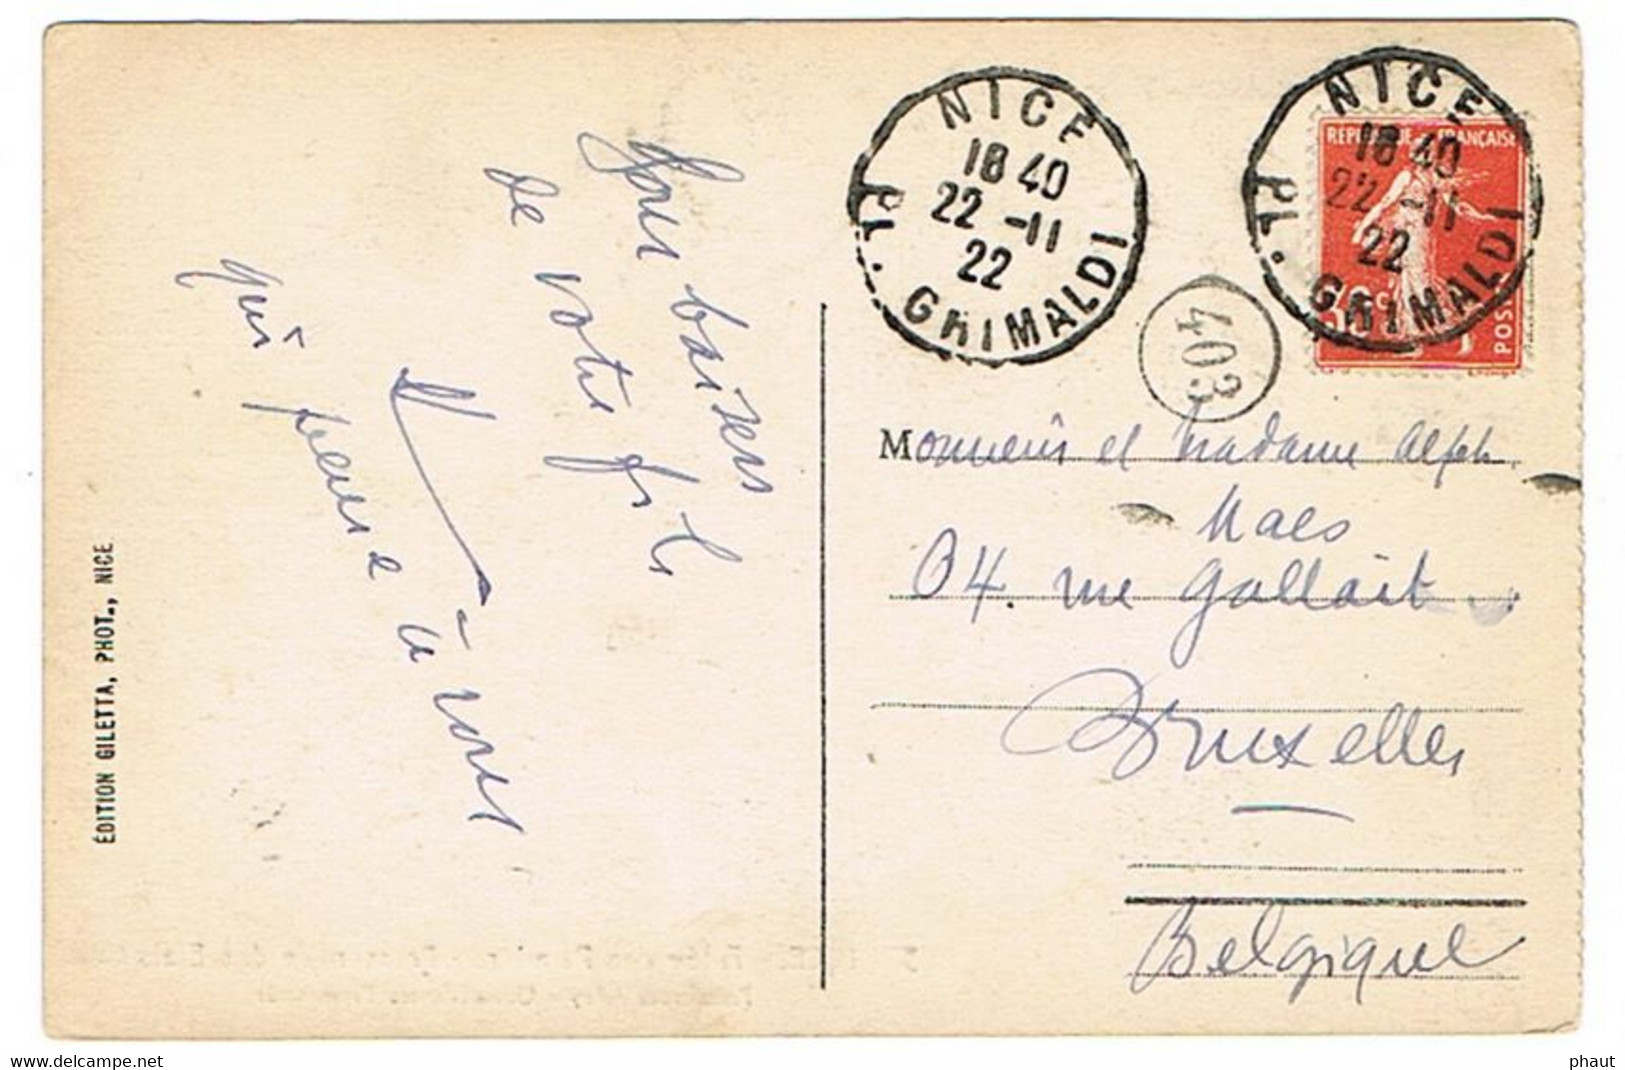 Bons baisers
de votre fils
qui pense
à vous
ÉDITION GILETTA, PHOT., NICE
NICE
18 40
22 -11
22
PL. GRIMALDI
NICE
18 40
22 -11
22
PL. GRIMALDI
RÉPUBLIQUE FRANÇAISE
POSTES
403
Monsieur et Madame Alph.
Maes
64 rue Gallait
Bruxelles
Belgique
phaut